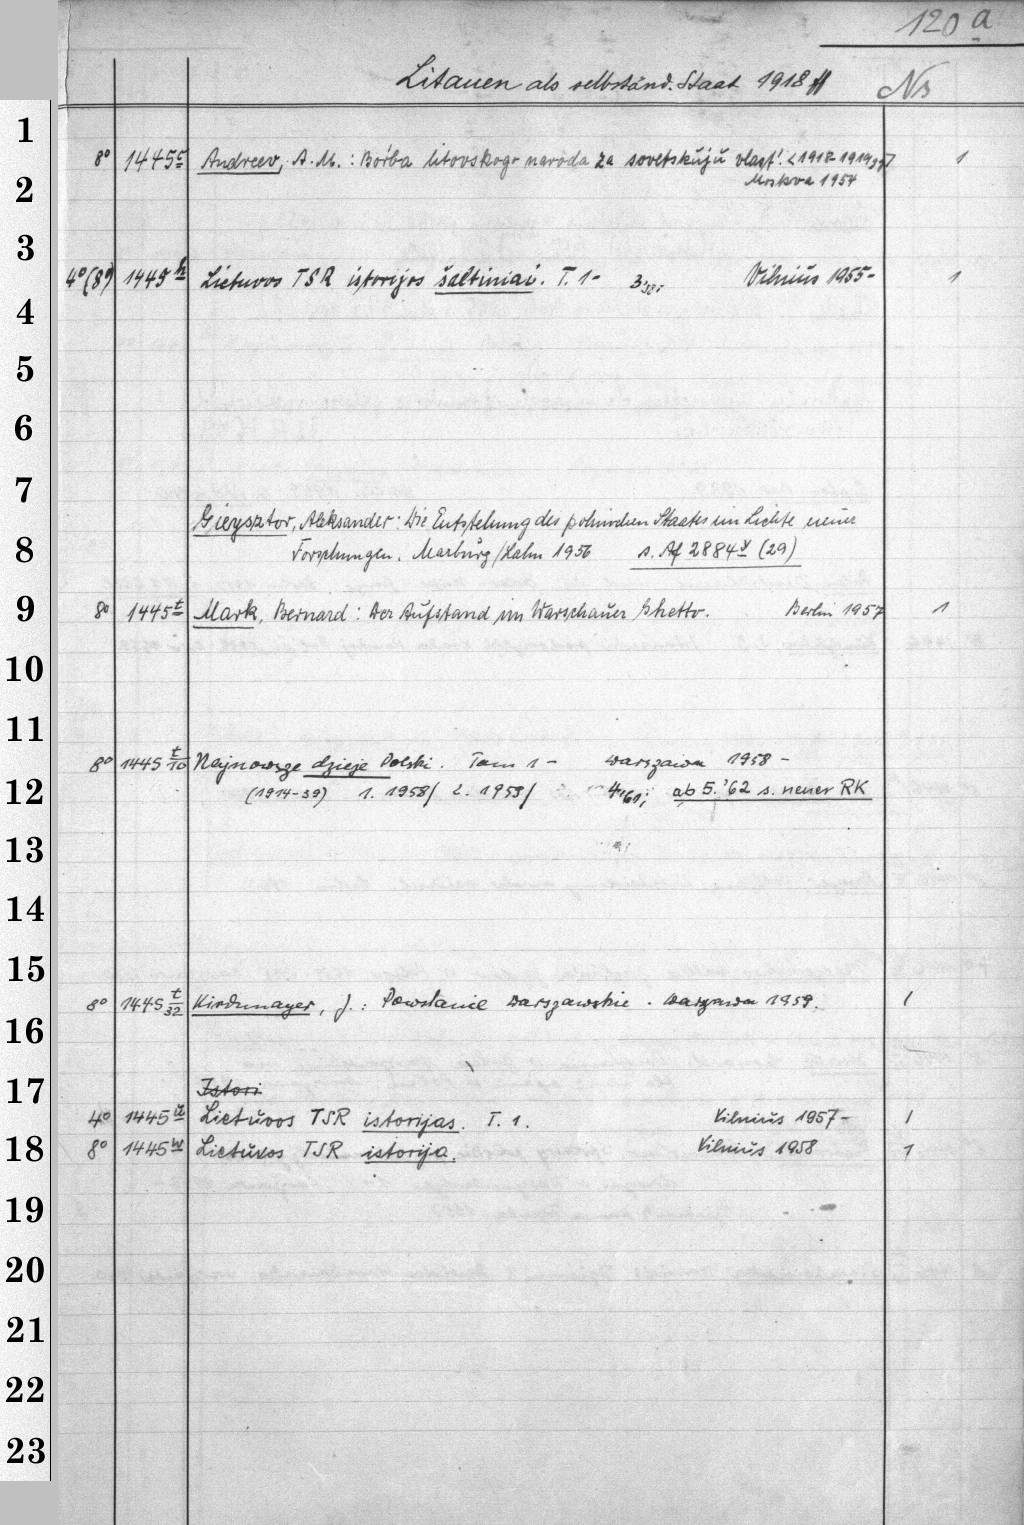 120 a
Litauen als selbständ. Staat 1918 ff Ns
1
8° 1445 c Andreev, A. M.: Bor'ba litovskogo naroda za sovetskuju vlast'. <1918-1919gg> 1
Moskva 1954
2
3
4° (8°) 1445 h Lietuvos TSR istorijos šaltiniai. T. 1- Vilnius 1955- 1
4
5
6
7
Gieysztor, Aleksander: Die Entstehung des polnischen Staates im Lichte neuer
8
Forschungen. Marburg/Lahn 1956 s. Af 2884 v (29)
9
8° 1445 t Mark, Bernard: Der Aufstand im Warschauer Ghetto. Berlin 1957 1
10
11
8° 1445 t/10 Najnowsze dzieje Polski. Tom 1- Warszawa 1958-
12
(1914-39) 1. 1958/ 2. 1959/ 4,'61; ab 5.'62 s. neuer RK
13
14
15
8° 1445 t/32 Kirchmayer, J.: Powstanie Warszawskie. Warszawa 1959. 1
16
17
Istori
4° 1445 u Lietuvos TSR istorijas. T. 1. Vilnius 1957- 1
18
8° 1445 w Lietuvos TSR istorija. Vilnius 1958 1
19
20
21
22
23